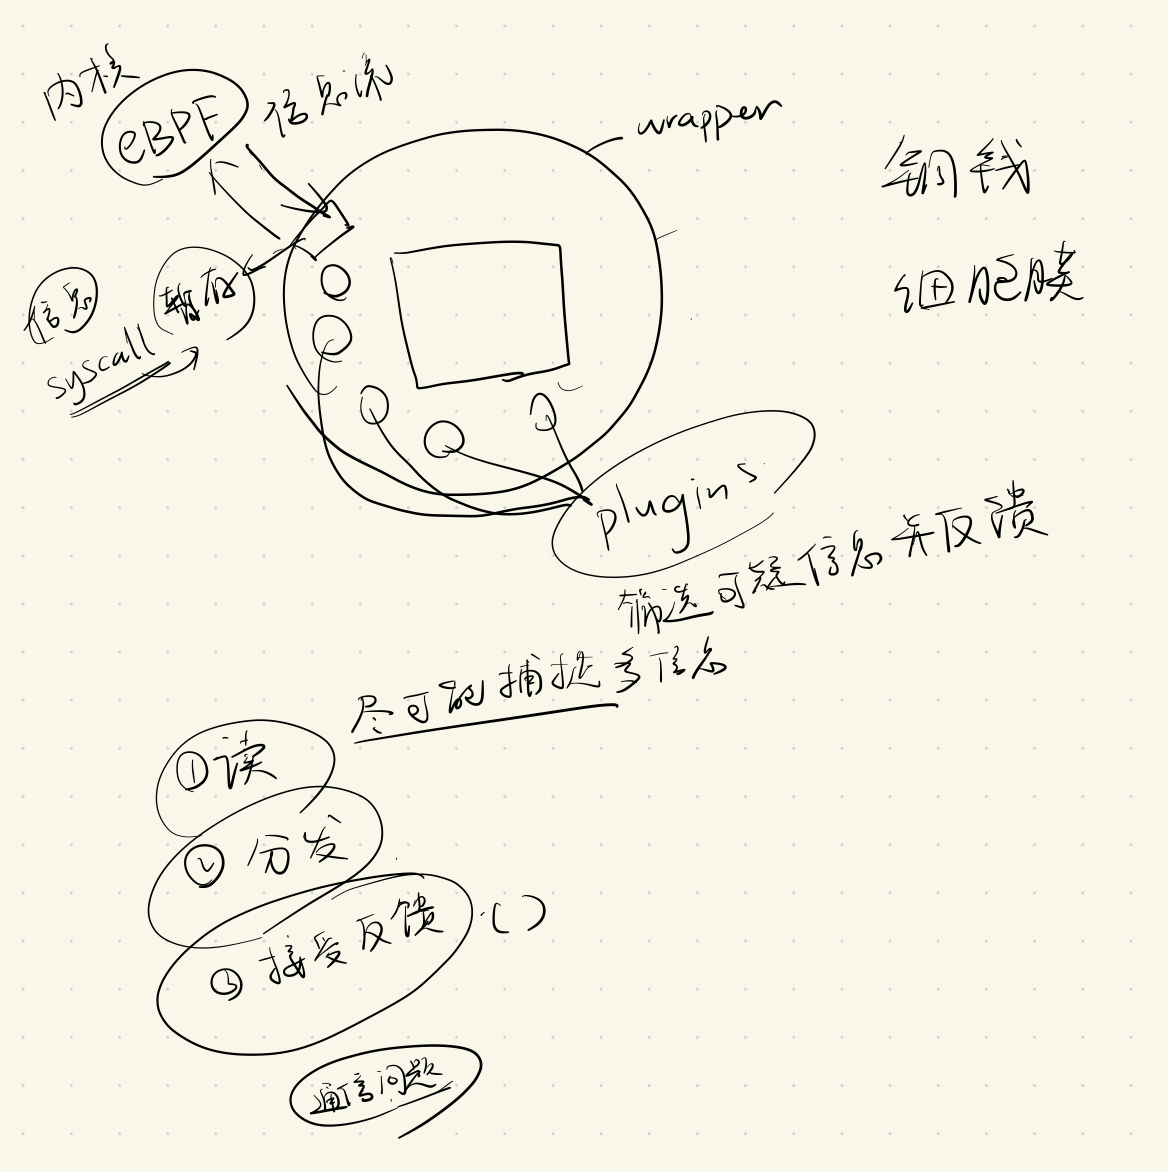 内核
eBPF 信息流
wrapper
铜钱
细胞膜
信息
暂存
syscall
plugins
筛选可疑信息并反溃
尽可能捕捉多信息
①读
②分发
③接受反馈 ( )
通信问题